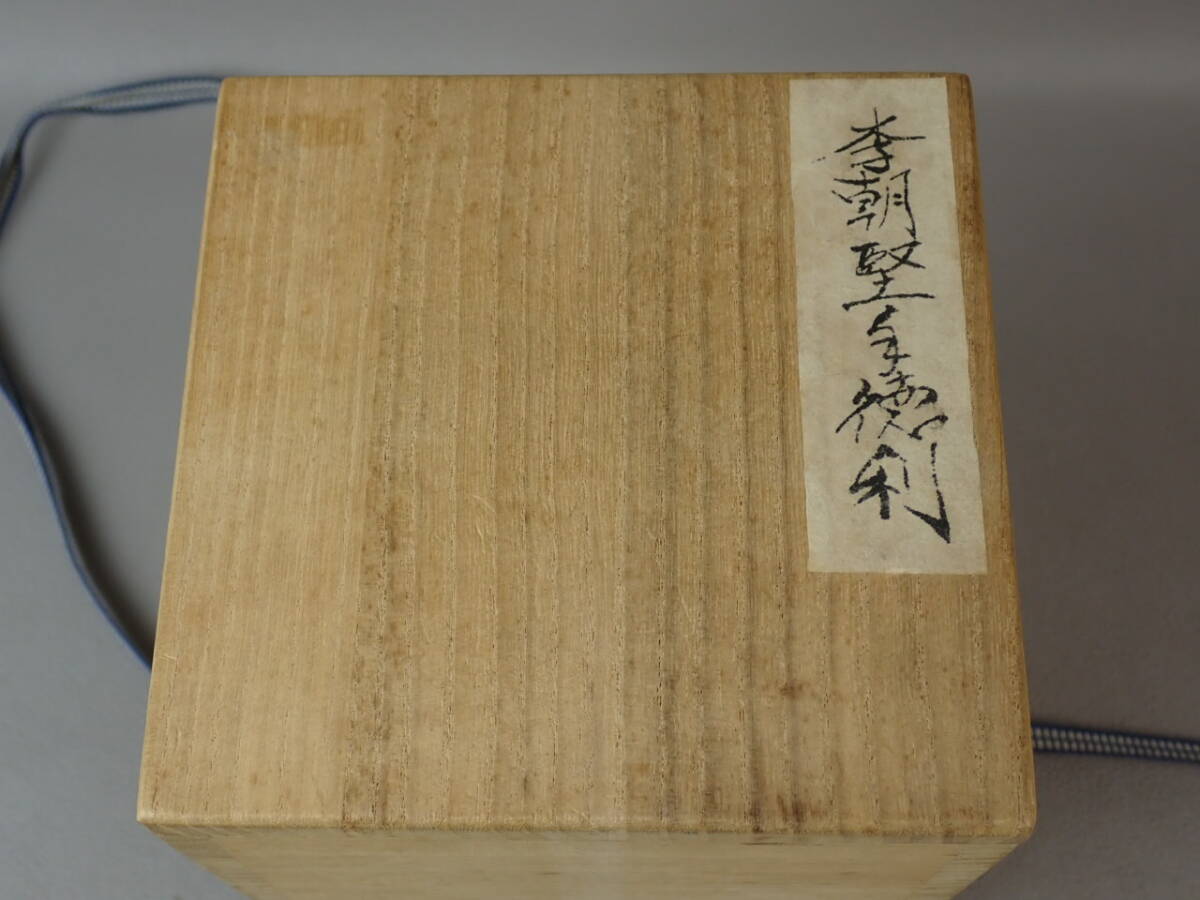 李朝堅手徳利